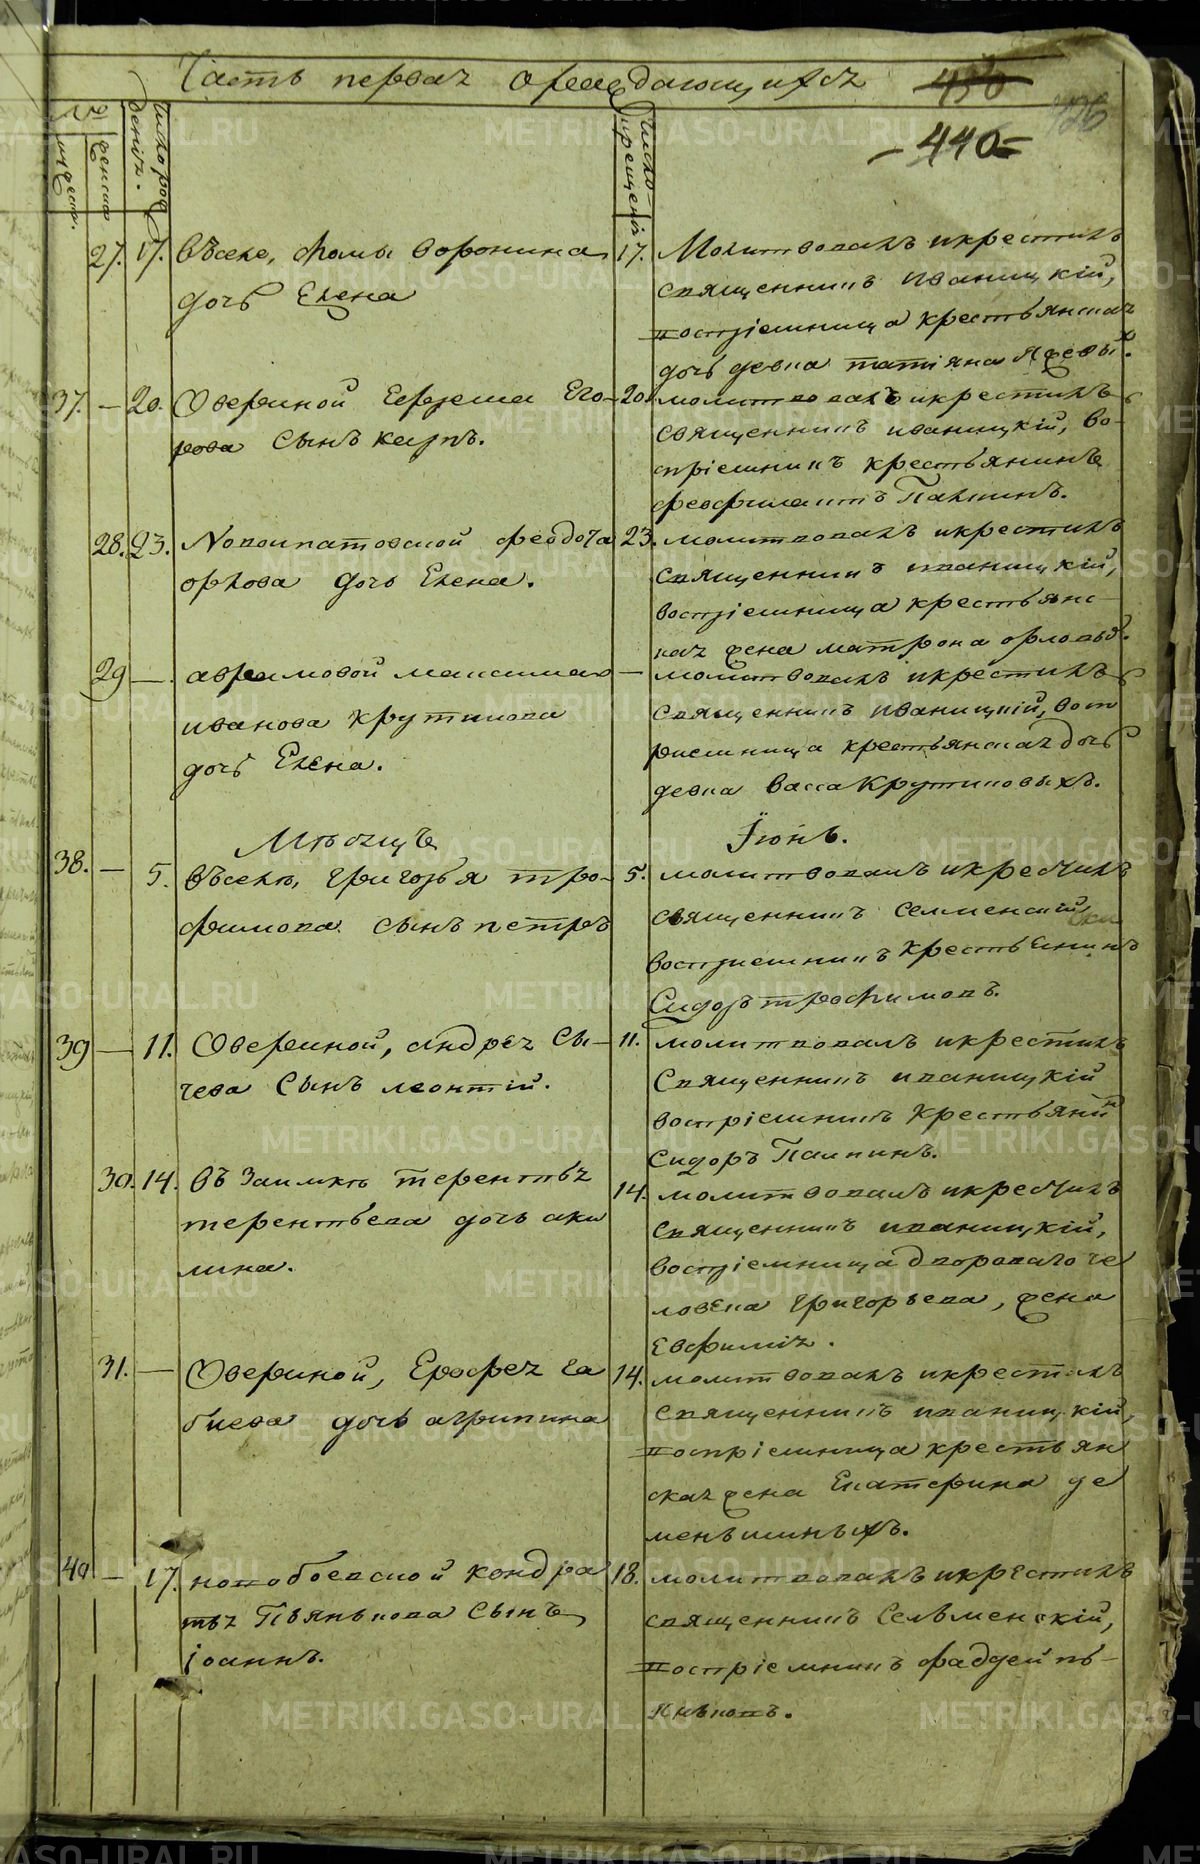 Часть первая о раждающихся
436
440
426
№
Число рождения.
Число крещения
мужеск.
женска
27. 17. въселе, Фомы Воронина
дочь Елена
17. Молитвовалъ и крестилъ
священникъ Иваницкій,
воспріемница крестьянская
дочь девка татіяна Яще
37. — 20. Овериной Ефрема Его-
рова Сынъ карпъ.
20. молитвовалъ и крестилъ
священникъ иваницкій, во-
спріемникъ крестьянинъ
феофилактъ Панкинъ.
28. 23. Новоипатовской феодота
орлова дочь Елена.
23. молитвовалъ и крестилъ
священникъ иваницкій,
воспріемница крестьянс-
кая жена матрона орловы
29 — авраамовой максима
иванова крутикова
дочь Елена.
— молитвовалъ и крестилъ
священникъ иваницкій, восп
риемница крестьянская дочь
девка васса Крутиковыхъ.
Мѣсяцъ Іюнь.
38. — 5. въселѣ, григорья тро-
фимова сынъ петръ
5. молитвовалъ и крестилъ
священникъ Селменскій
воспріемникъ крестьянинъ
Сидоръ трофимовъ.
39 — 11. Овериной, андрея Сы-
чева Сынъ леонтій.
11. молитвовалъ и крестилъ
Священникъ иваницкій
воспріемникъ крестьянинъ
Сидоръ Панкинъ.
30. 14. въ Заимкѣ терентья
терентьева дочь аки
лина.
14. молитвовалъ и крестилъ
священникъ иваницкій,
воспріемница двороваго че
ловека григорьева, жена
Евфимія.
31. — Овериной, Ерофея га
биева дочь агрипина
14. молитвовалъ и крестилъ
священникъ иваницкій,
воспріемница крестьян
ская жена Екатерина де
меньшиныхъ.
40 — 17. новобоевской кондра
тья Пьянкова Сынъ
іоаннъ.
18. молитвовалъ и крестилъ
священникъ Сельменскій,
воспріемникъ фаддей пь-
янковъ.